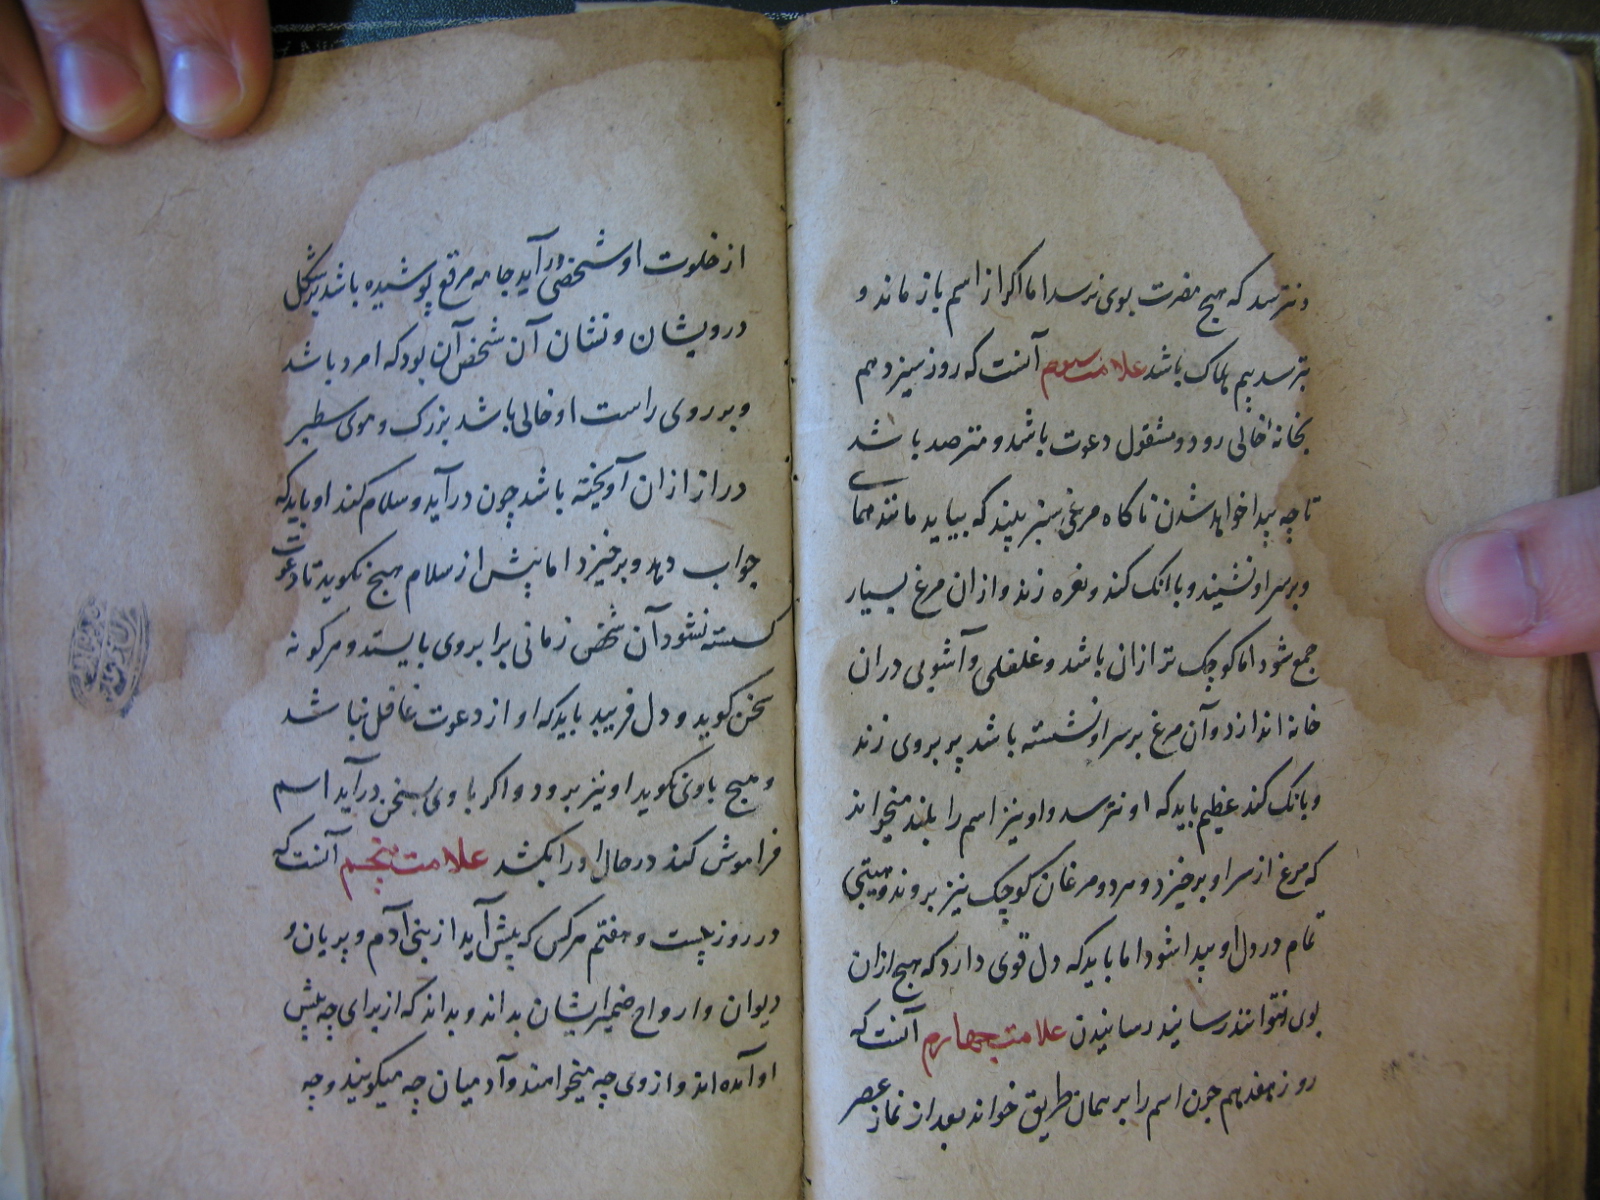 و نترسد که هیچ مضرت بوی نرسد اما اکر از اسم باز ماند و
بترسد بیم هلاک باشد علامت سوم آنست که روز سیزدهم
بخانه خالی رود و مشقول دعوت باشد و مترصد باشد
تا چه پیدا خواهد شدن ناکاه مرغی سبز بیند که بیاید مانند همای
و بر سر او نشیند و بانک کند و نعره زند و ازان مرغ بسیار
جمع شود اما کوچک تر ازان باشد و غلغلی و آشوبی دران
خانه اندازد و آن مرغ بر سر او نشسته باشد پر بروی زند
و بانک کند عظیم باید که او نترسد و او نیز اسم را بلند میخواند
که مرغ از سر او برخیزد و مرد و مرغان کوچک نیز بروند و هیبتی
تمام در دل او پیدا شود اما باید که دل قوی دارد که هیچ ازان
بوی نتوانند رسانید رسانیدن علامت چهارم آنست که
روز هفدهم چون اسم را بر همان طریق خواند بعد از نماز عصر
از خلوت او شخصی در آید جامه مرقع پوشیده باشد بر شکل
درویشان و نشان آن شخص آن بود که امرد باشد
و بر روی راست او خالی باشد بزرک و موی سطبر
دراز ازان آویخته باشد چون در آید و سلام کند او باید که
جواب دهد و برخیزد اما پیش از سلام هیچ نکوید تا دعوت
کسسته نشود آن شخص زمانی برابر وی بایستد و هر کونه
سخن کوید و دل فریبد باید که او از دعوت غافل نباشد
و هیچ باوی نکوید او نیز برود و اکر با وی بسخن در آید اسم
فراموش کند در حال او را بکشد علامت پنجم آنست که
در روز بیست و هفتم هر کس که پیش آید از بنی آدم و پریان و
دیوان و ارواح ضمیر ایشان بداند و بداند که از برای چه پیش
او آمده اند و از وی چه میخواهند و آدمیان چه میکویند و چه